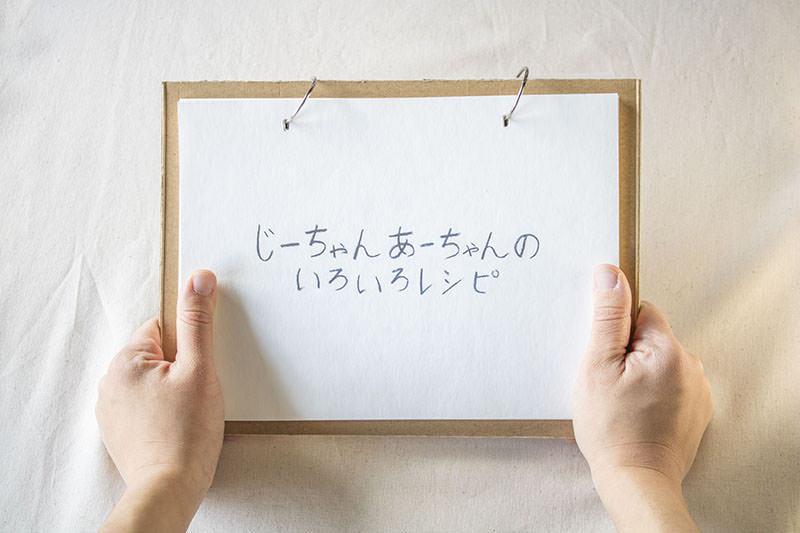 じーちゃんあーちゃんの
いろいろレシピ